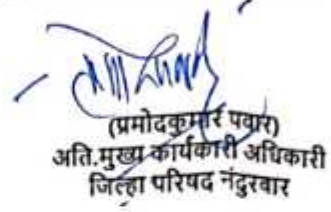 (प्रमोदकुमार पवार)
अति.मुख्य कार्यकारी अधिकारी
जिल्हा परिषद नंदुरबार